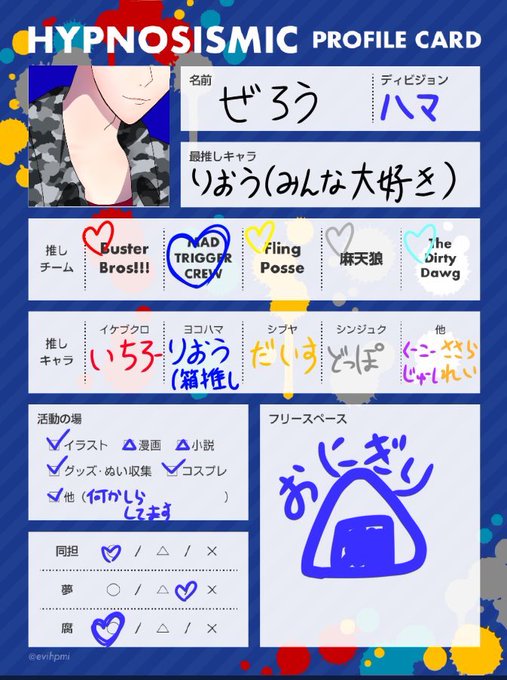 HYPNOSISMIC PROFILE CARD
名前
ぜろう
ディビジョン
ハマ
最推しキャラ
りおう(みんな大好き)
推し
チーム
Buster
Bros!!!
MAD
TRIGGER
CREW
Fling
Posse
麻天狼
The
Dirty
Dawg
推し
キャラ
イケブクロ
いちろー
ヨコハマ
りおう
(箱推し
シブヤ
だいす
シンジュク
どっぽ
他
くーこー ささら
じゅーし れい
活動の場
イラスト 漫画 小説
グッズ・ぬい収集 コスプレ
他 (何かしら
してます )
同担 / △ / ×
夢 ○ / △ ×
腐 ○ / △ / ×
フリースペース
おにぎり
@evihpmi